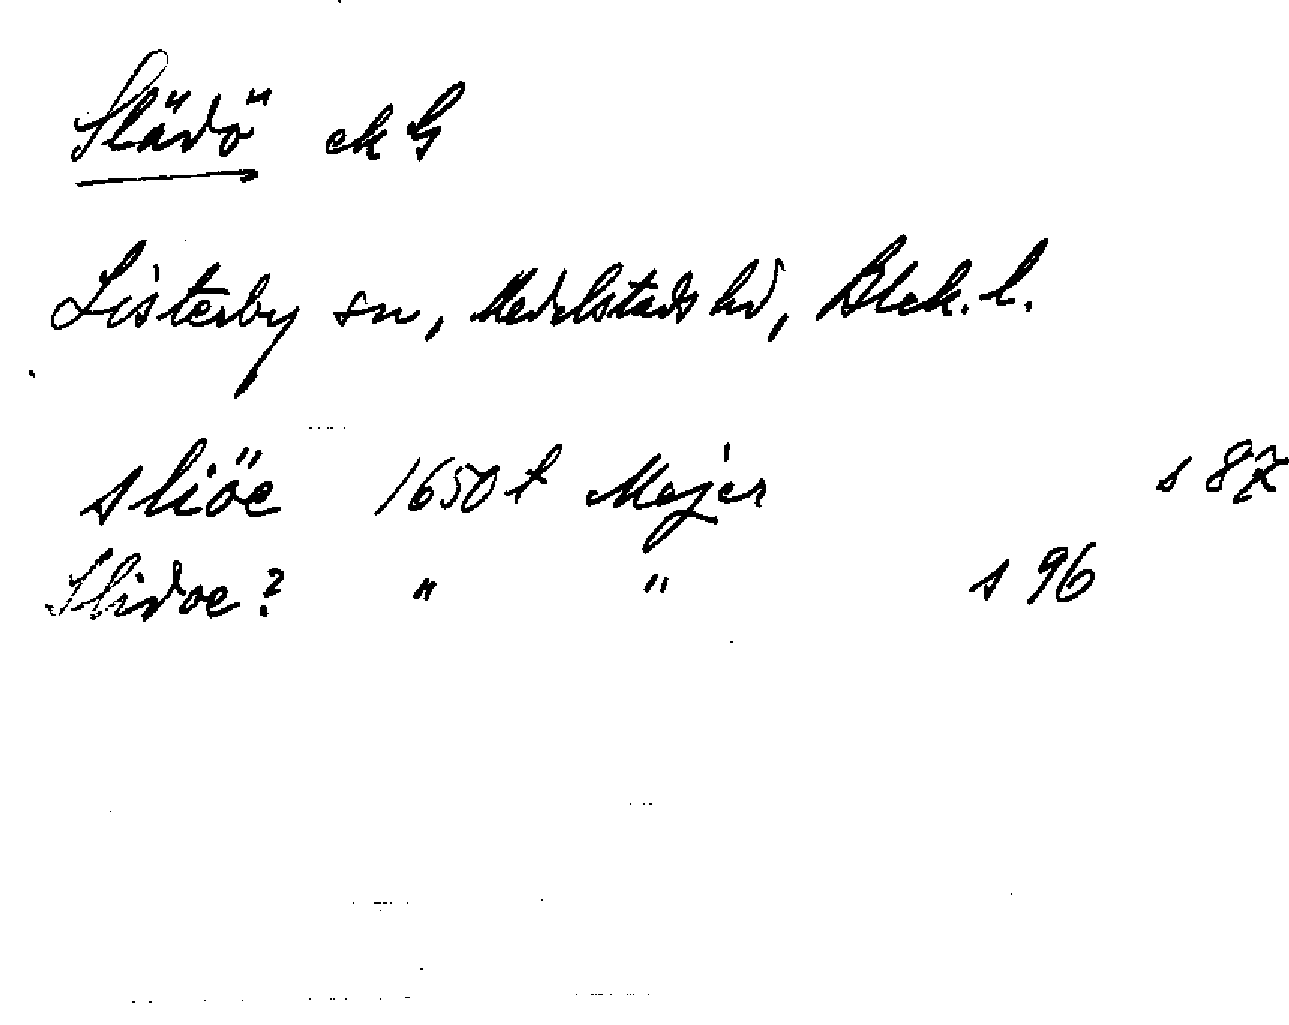 Slädö ek G
Listerby sn, Medelstads hd, Blek. l.
sliöe 1650 t Mejer s 87
Slidoe? " " s 96